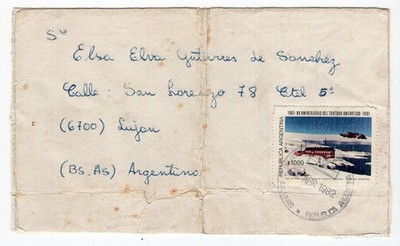 Sra
Elsa Elva Gutierres de Sanchez
Calle: San Lorenzo 78 Ctel 5º
(6700) Lujan
(Bs. As) Argentina
1961-XX ANIVERSARIO DEL TRATADO ANTARTICO-1981
REPUBLICA ARGENTINA
$1000
1982
REPUBLICA